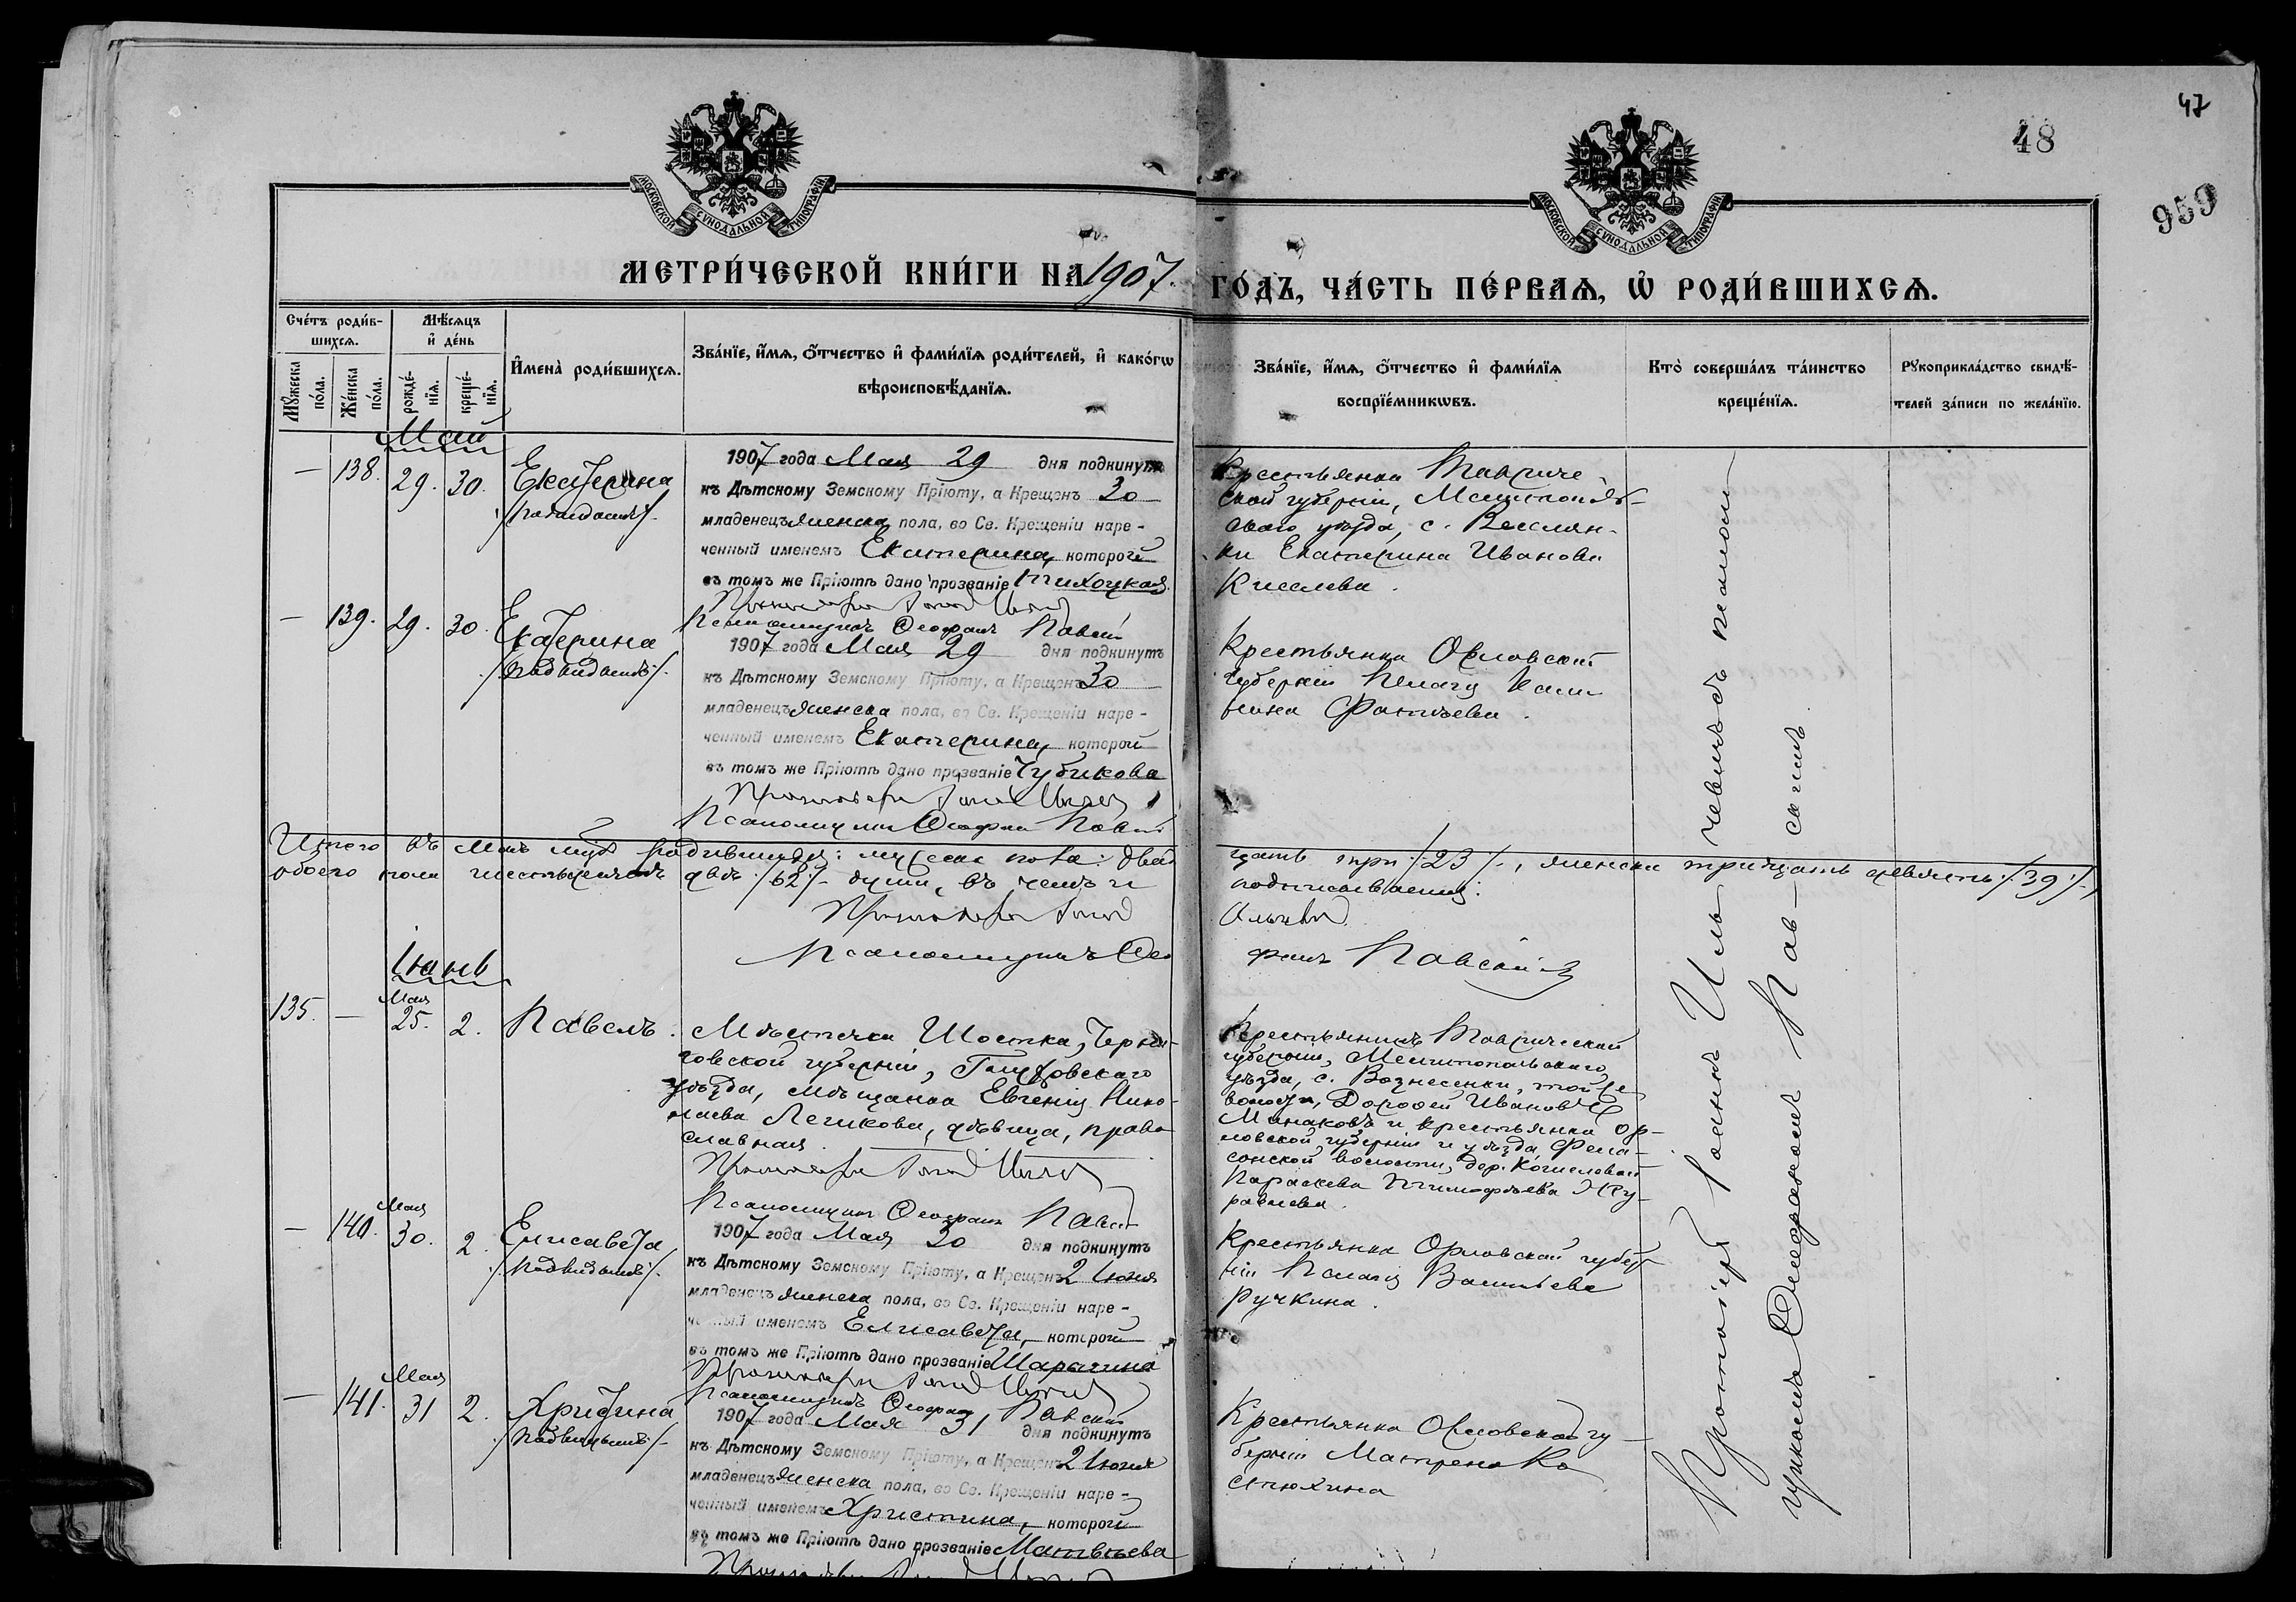 47
48
959
МОСКОВСКОЙ СѴНОДАЛЬНОЙ ТИПОГРАФІИ
МОСКОВСКОЙ СѴНОДАЛЬНОЙ ТИПОГРАФІИ
МЕТРИ́ЧЕСКОЙ КНИ́ГИ НА 1907. ГО́ДЪ, ЧА́СТЬ ПЕ́РВАѦ, Ѡ҆ РОДИ́ВШИХСѦ.
Сче́тъ роди́в-
шихсѧ.
Мꙋжеска по́ла.
Же́нска по́ла.
Мѣ́сѧцъ
и҆ де́нь
рожде́-
нїѧ.
креще́-
нїѧ.
И҆мена̀ роди́вшихсѧ.
Зва́нїе, и҆́мѧ, ѻ҆́тчество и҆ фами́лїѧ роди́телей, и҆ како́гѡ
вѣроисповѣ́данїѧ.
Зва́нїе, и҆́мѧ, ѻ҆́тчество и҆ фами́лїѧ
воспрїе́мникѡвъ.
Кто̀ соверша́лъ та́инство
креще́нїѧ.
Рꙋкоприкла́дство свидѣ́-
телей за́писи по жела́нїю.
Май
— 138. 29. 30. Екатерина
1907 года Мая 29 дня подкинут
къ Дѣтскому Земскому Пріюту, а Крещенъ 30
младенецъ женска пола, во Св. Крещеніи наре-
ченный именемъ Екатерина, которой
въ томъ же Пріютѣ дано прозваніе Тихоцкая.
Псаломщикъ Ѳеофанъ Павскій
Крестьянка Тавриче-
ской губерніи, Мелитополь-
скаго уѣзда, с. Веселян-
ки Екатерина Иванова
Киселева.
— 139. 29. 30. Екатерина
1907 года Мая 29 дня подкинутъ
къ Дѣтскому Земскому Пріюту, а Крещенъ 30
младенецъ женска пола, во Св. Крещеніи наре-
ченный именемъ Екатерина, которой
въ томъ же Пріютѣ дано прозваніе Чубикова
Псаломщикъ Ѳеофанъ Павскій
Крестьянка Орловской
губерніи
Итого въ Маѣ родившихся: мужеска пола: двад-
цать три /23/, женска тридцать девять /39/,
обоего пола шестьдесятъ двѣ /62/ души, въ чемъ и
подписываемся:
Псаломщикъ Ѳео-
фанъ Павскій
Іюнь
135. — Мая 25. 2. Павелъ.
Мѣстечка Шостка, Черни-
говской губерніи, Глуховскаго
уѣзда, мѣщанка Евгенія Нико-
лаева Легикова, дѣвица, право-
славная.
Псаломщикъ Ѳеофанъ Павскій
Крестьянинъ Таврической
губерніи, Мелитопольскаго
уѣзда, с. Вознесенки, той же
волости, Дороѳей Ивановъ
Минаковъ и крестьянка Ор-
ловской губерніи и уѣзда,
волости, дер.
Параскева Тимофѣева Жу-
равлева.
— 140. Мая 30. 2. Елисавета
1907 года Мая 30 дня подкинутъ
къ Дѣтскому Земскому Пріюту, а Крещенъ 2 Іюня
младенецъ женска пола, во Св. Крещеніи наре-
ченный именемъ Елисавета, которой
въ томъ же Пріютѣ дано прозваніе Шарагина
Псаломщикъ Ѳеофанъ Павскій
Крестьянка Орловской губер-
ніи Пелагія Васильева
Ручкина.
— 141. Мая 31 2. Христина
1907 года Мая 31 дня подкинутъ
къ Дѣтскому Земскому Пріюту, а Крещенъ 2 Іюня
младенецъ женска пола, во Св. Крещеніи наре-
ченный именемъ Христина, которой
въ томъ же Пріютѣ дано прозваніе Матвѣева
Крестьянка Орловской гу-
берніи Матрена Ко-
стюхина
Протоіерей Іоаннъ Иль-